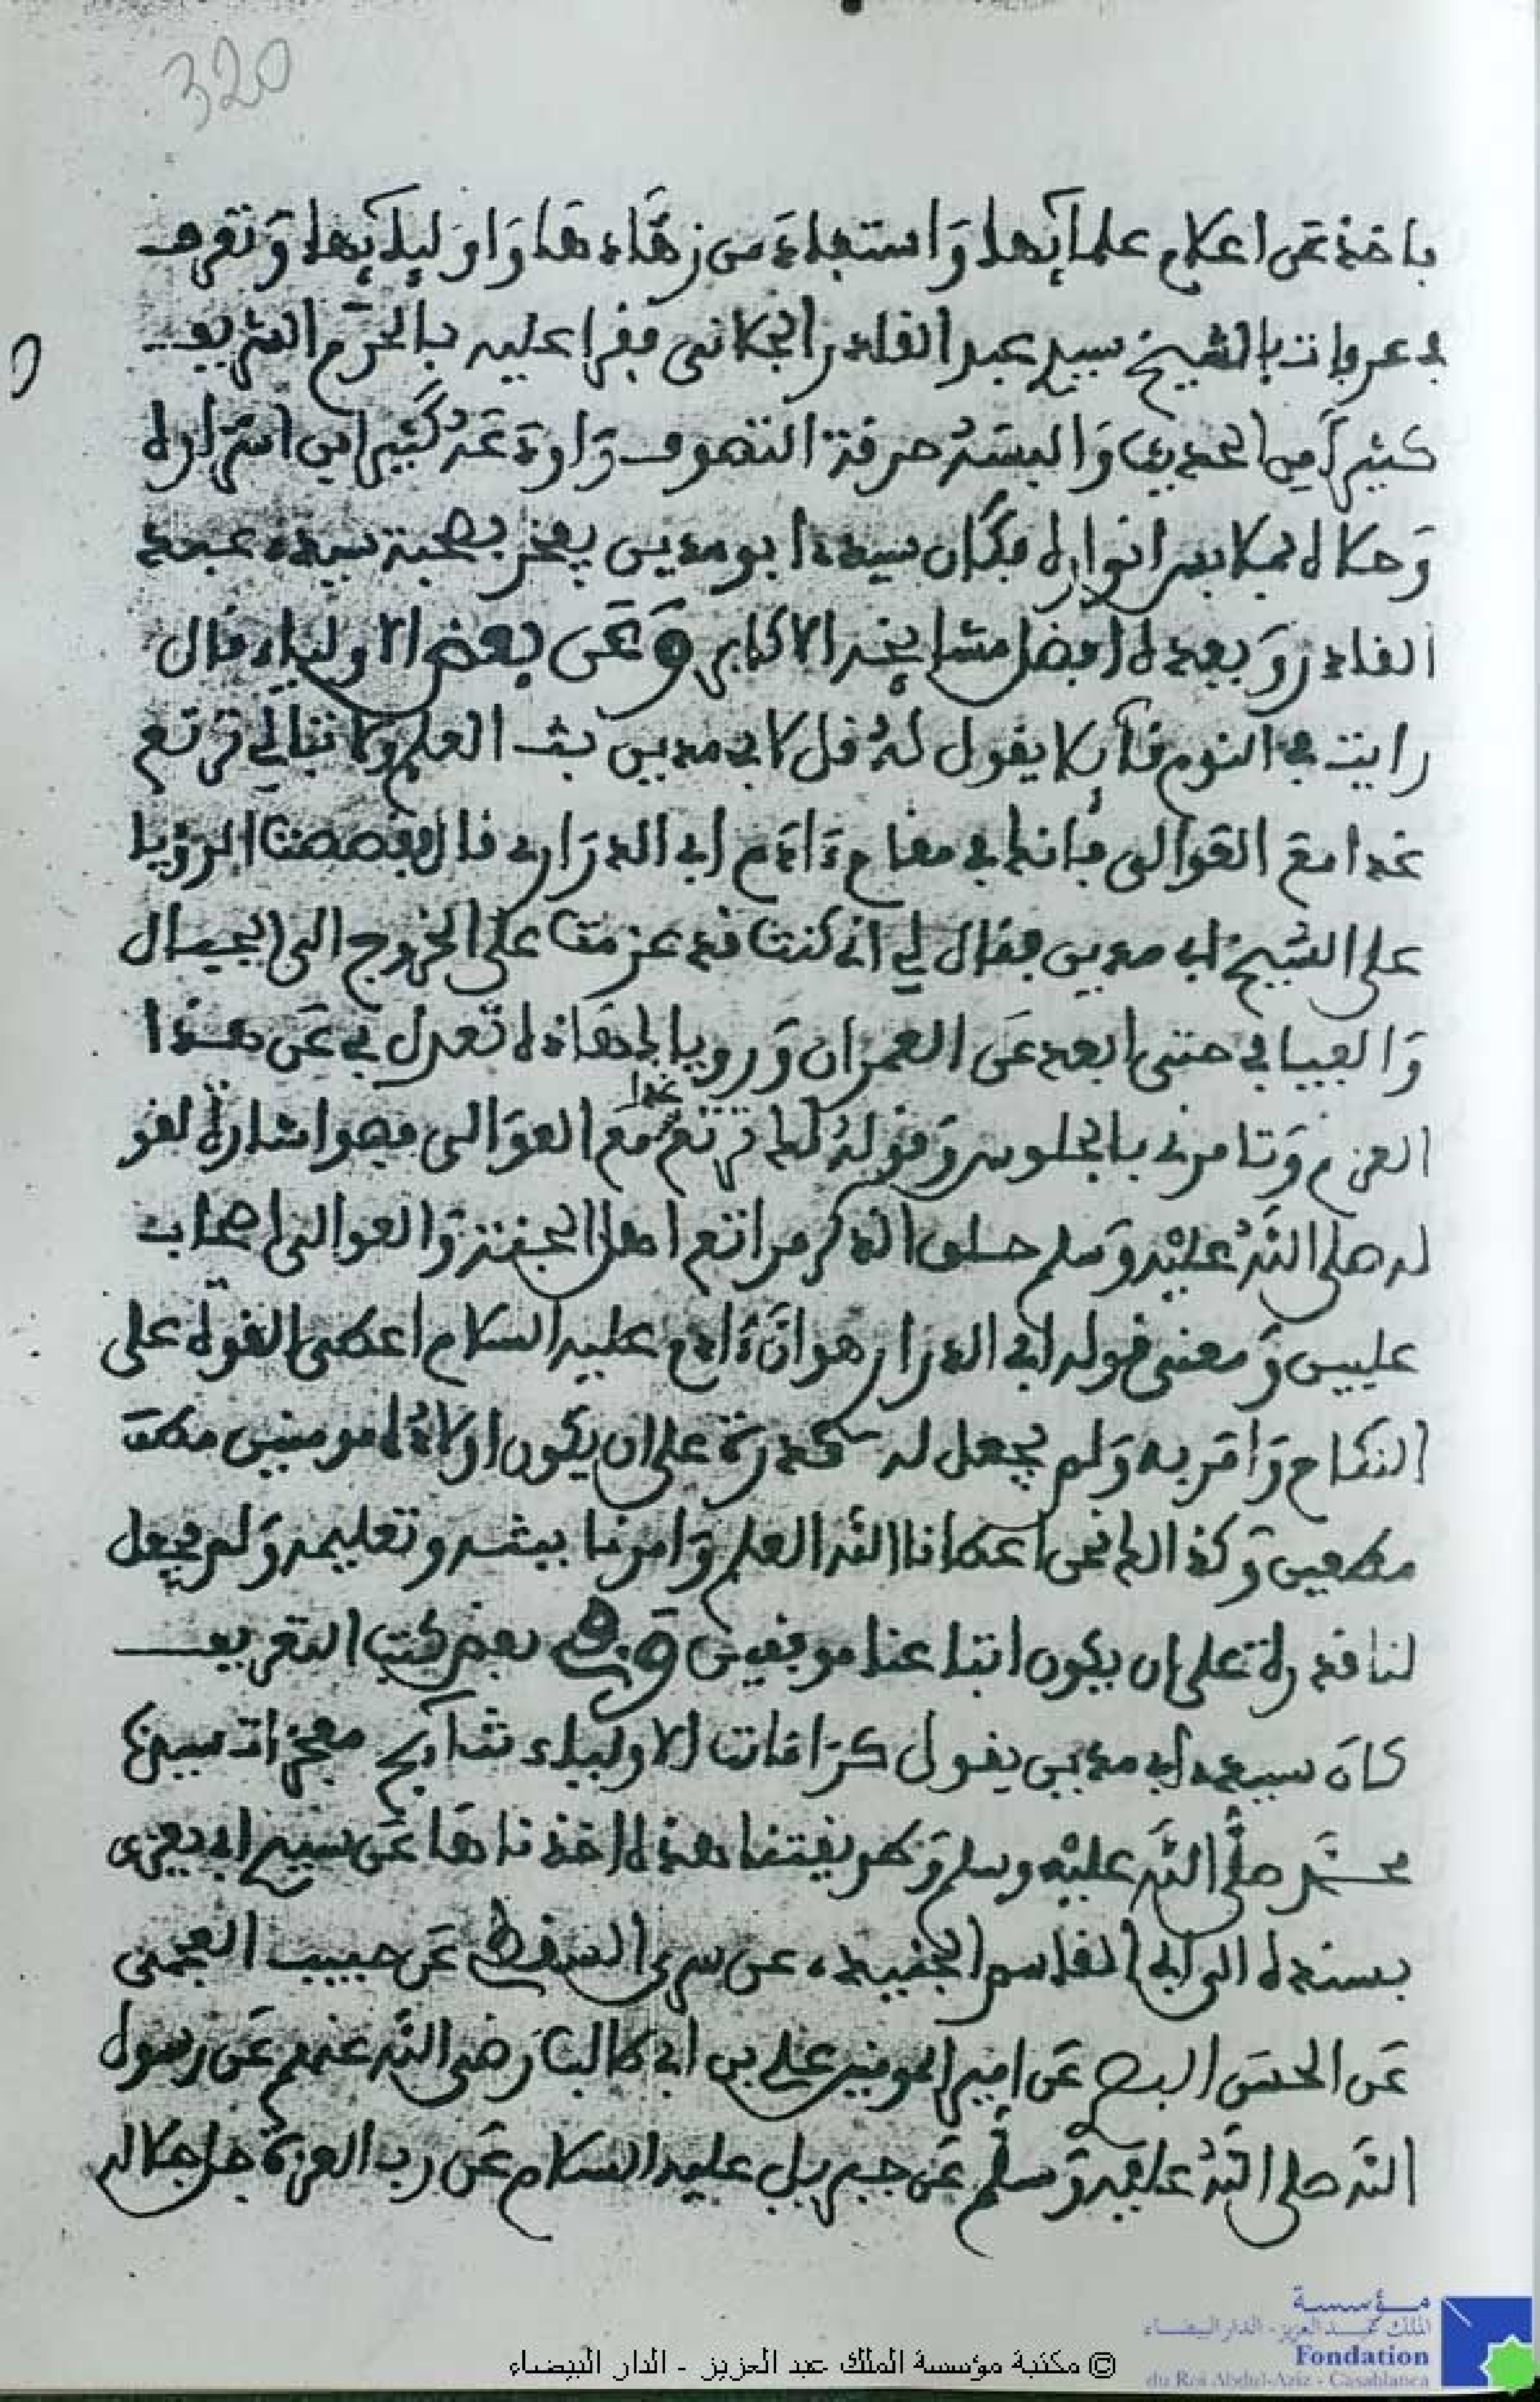 320
فاخذ عن اعلام علمآيها واستفاد من زهاءدها واوليآيها وتعرف
بعرفات بالشيخ سيد عبد القادر الجلاني فقرا عليه بالحرم الشريف
كثيرا من الحديث والبسه خرقة التصوف واودعه كثيرا من اسراره
وحلاه بملابس انواره فكان سيدي ابو مدين يفخر بصحبة سيدي عبد
القادر وبعده افضل مشايخه الاكابر وعن بعض الاوليا قال
رايت في النوم قآيلا يقول له قل لابي مدين بث العلم ولا تبالي ترتع
غدا مع العوالى فانك في مقام ءادم ابي الدراري قال فقصصت الرؤيا
على الشيخ ابي مدين فقال لي اني كنت قد عزمت على الخروج الى الجبال
والفيافي حتى ابعد عن العمران ورؤياك هاذه تعدل بي عن هذا
العزم وتامرني بالجلوس وقوله لك ترتع غدا مع العوالى فهو اشارة لقو
له صلى الله عليه وسلم حلق الذكر مراتع اهل الجنة والعوالى اصحاب
عليين ومعنى قوله ابي الدراري هو ان ءادم عليه السلام اعطى القوة على
النكاح وامر به ولم يجعل له قدرة على ان يكون اولاده مومنين مطـ
مطيعين وكذالك نحن اعطانا الله العلم وامرنا ببثه وتعليمه ولم يجعل
لنا قدرة على ان يكون اتباعنا موفقين وفي بعض كتب التعريف
كان سيدي ابي مدين يقول كرامات الاولياء نتآيج معجزات سيدنا
محمد صلى الله عليه وسلم وطريقتنا هذه اخذناها عن سيدي ابي يعزى
بسنده الى ابي القاسم الجنيد عن سري السقطي عن حبيب العجمى
عن الحسن البصـ عن امير المومنين علي بن ابي طالب رضي الله عنهم عن رسول
الله صلى الله عليه وسلم عن جبريل عليه السلام عن رب العزة جل جلاله
مؤسسة
الملك عبد العزيز - الدار البيضاء
Fondation
du Roi Abdul-Aziz - Casablanca
© مكتبة مؤسسة الملك عبد العزيز - الدار البيضاء